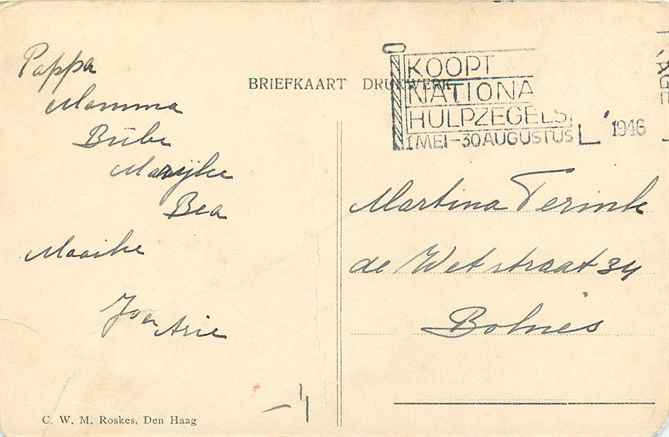 Pappa
Mamma
Bübe
Marijke
Bea
Maaike
Arie
BRIEFKAART DRUKWERK
KOOPT
NATIONA
HULPZEGELS.
1 MEI-30 AUGUSTUS
1946
Martina Terink
de Wetstraat 34
Bolnes
C. W. M. Roskes, Den Haag